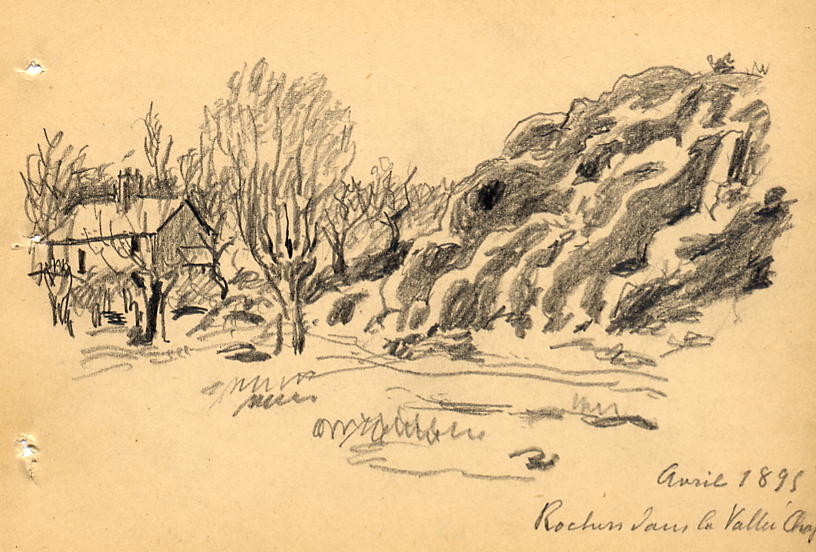 Avril 1895
Rochers dans la Vallée